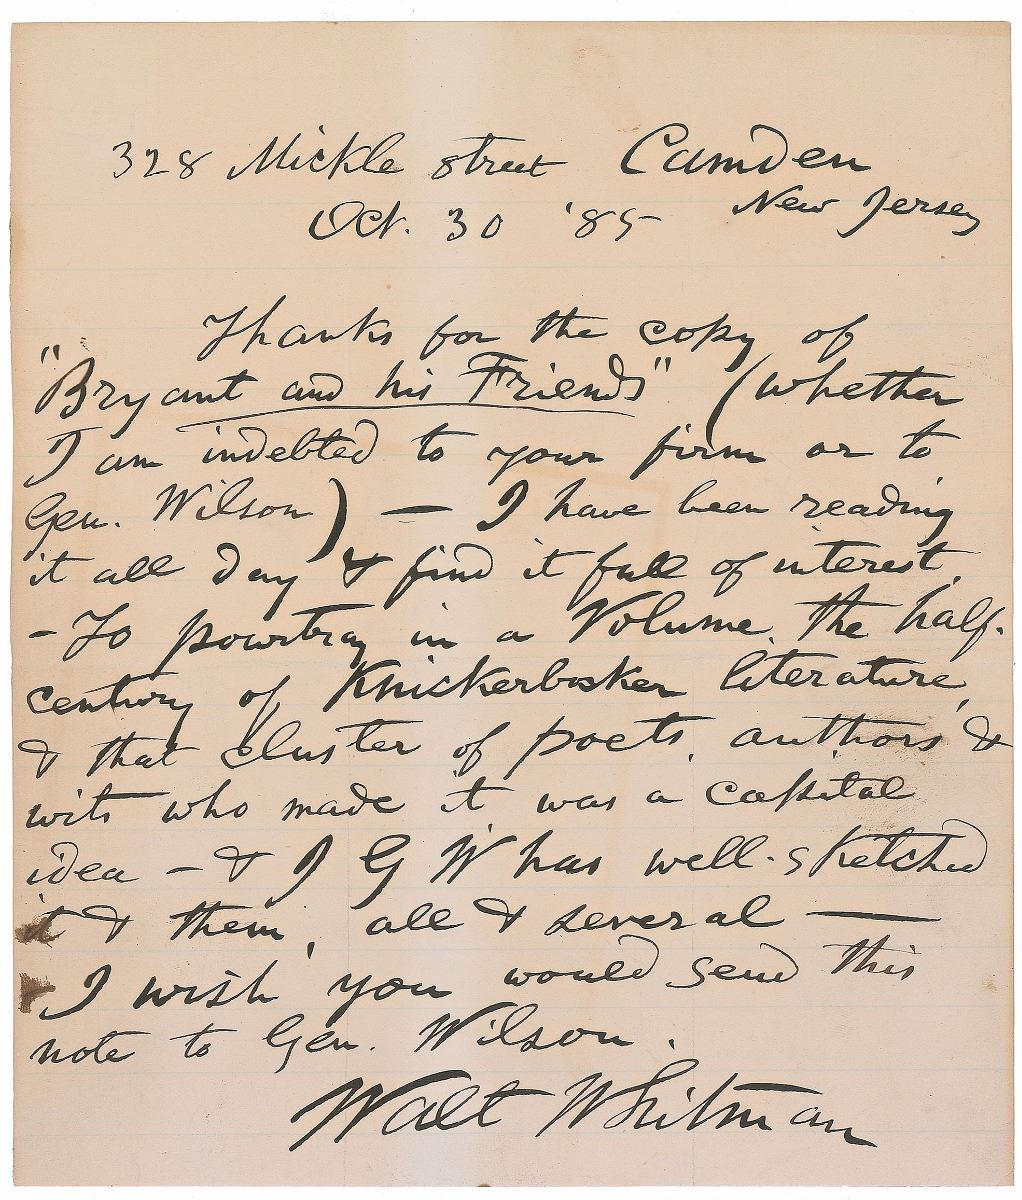 328 Mickle street Camden
Oct. 30 '85 New Jersey
Thanks for the copy of
"Bryant and his Friends" (whether
I am indebted to your firm or to
Gen. Wilson) — I have been reading
it all day & find it full of interest.
- To pourtray in a Volume the half-
century of Knickerbocker literature,
& that cluster of poets, authors &
wits who made it was a capital
idea - & J G W has well-sketched
it & them, all & several —
I wish you would send this
note to Gen. Wilson.
Walt Whitman